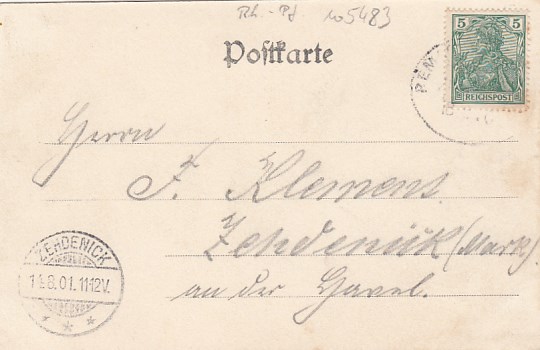 Rh. - Pf 105483
Postkarte
5 5
REICHSPOST
REM
Herrn
F. Klemens
Zehdenick (Mark)
an der Havel.
ZEHDENICK
8.01. 11-12V.
* * *